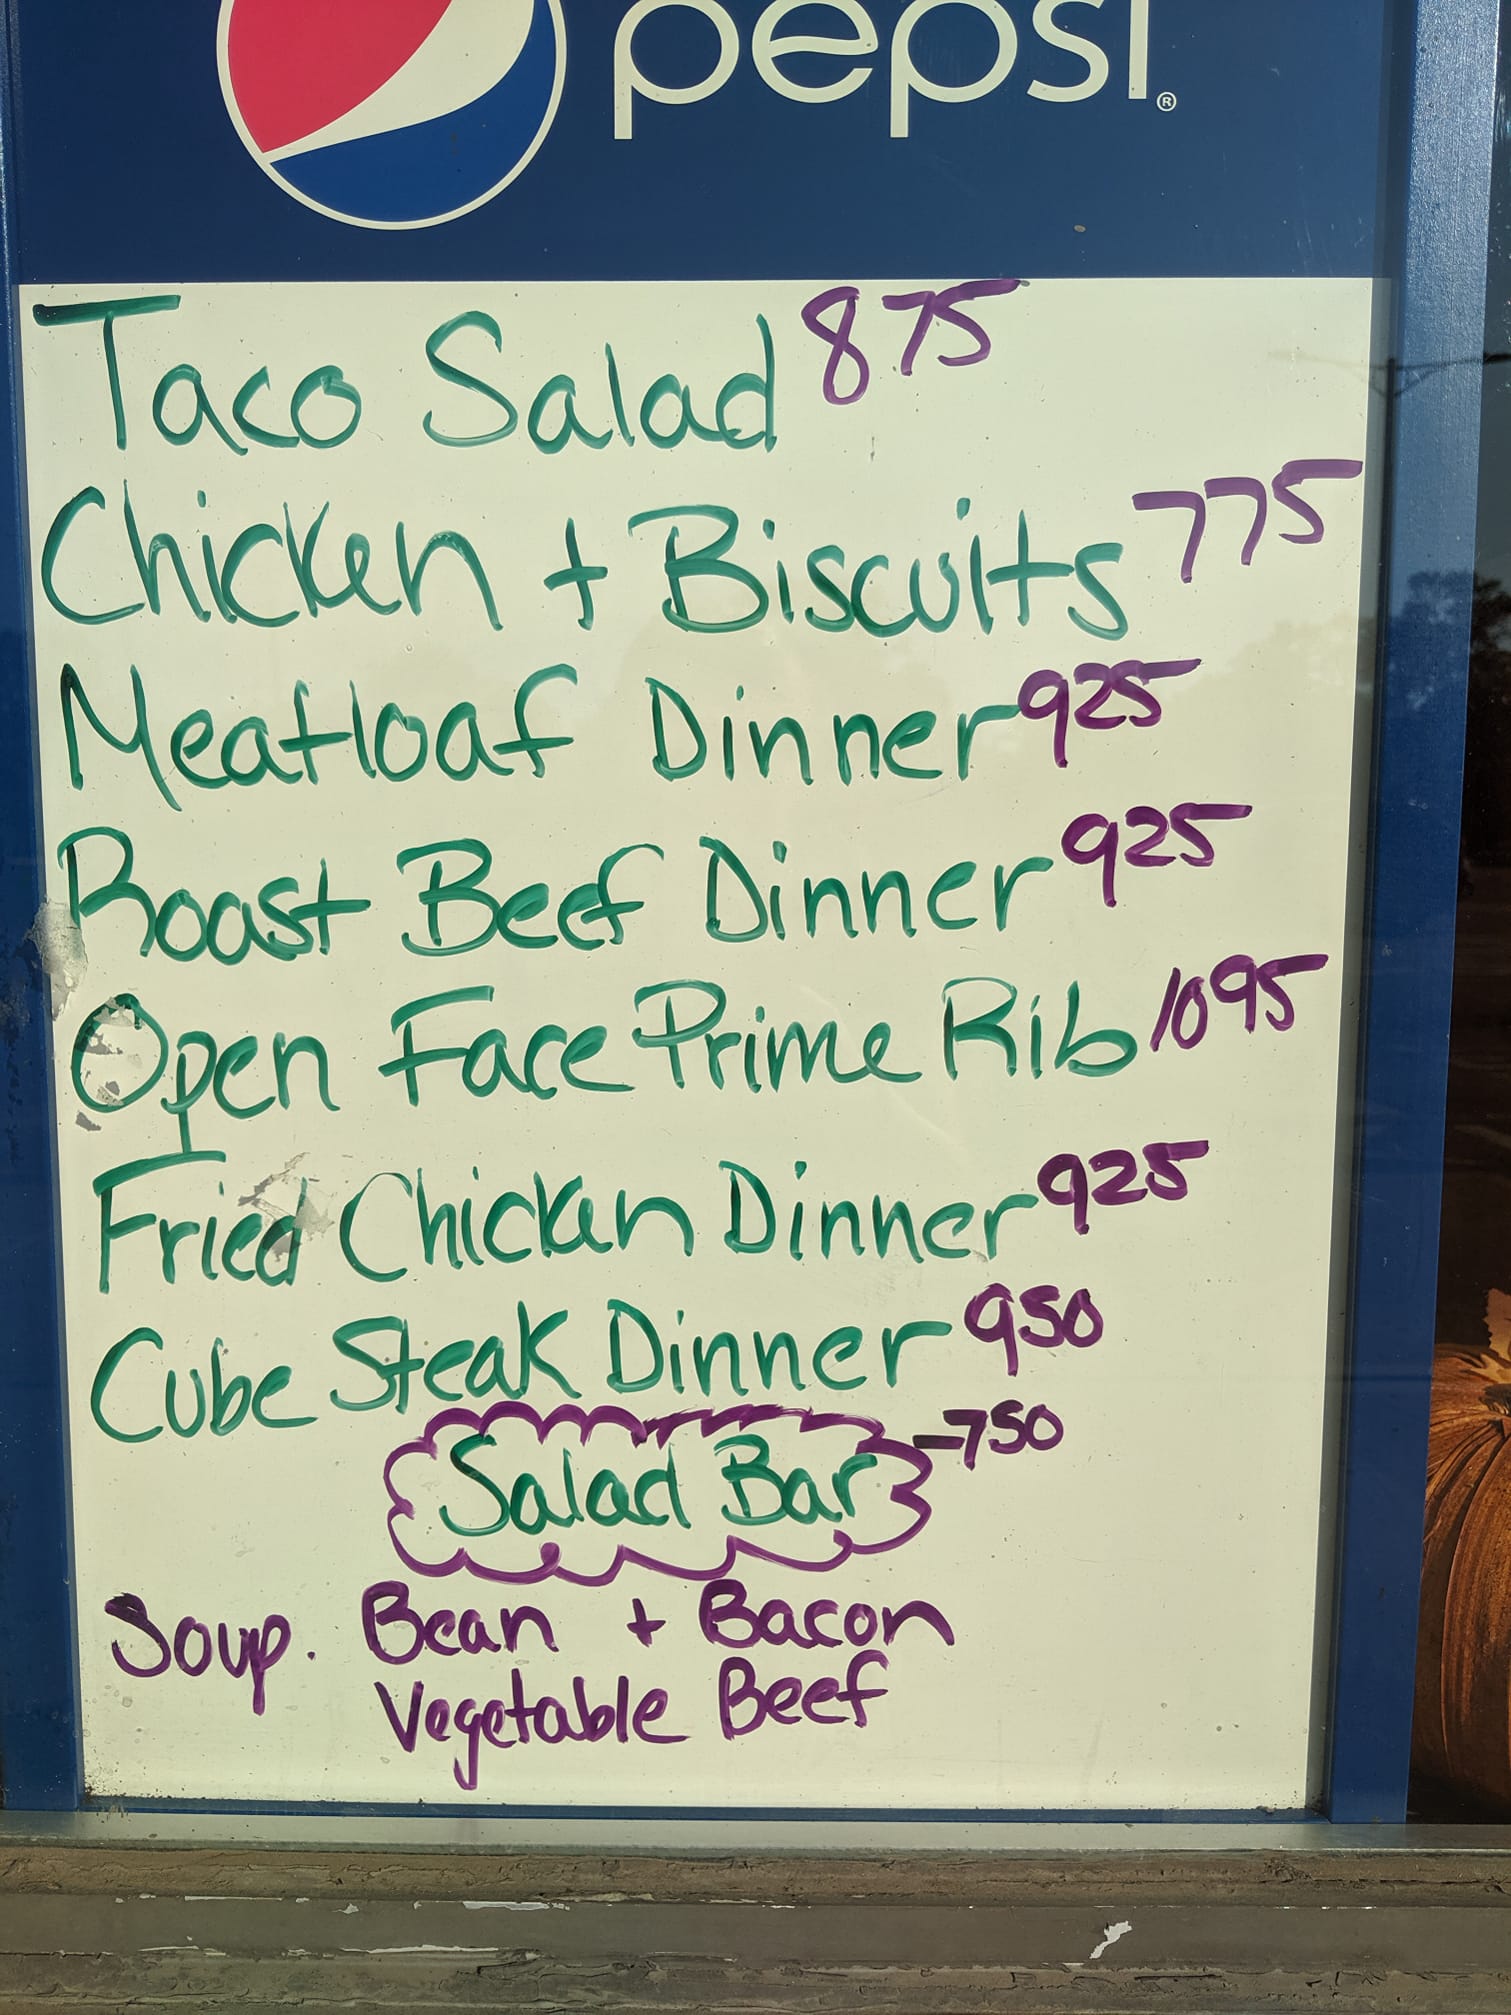 pepsi®
Taco Salad 875
Chicken + Biscuits 775
Meatloaf Dinner 925
Roast Beef Dinner 925
Open Face Prime Rib 1095
Fried Chicken Dinner 925
Cube Steak Dinner 950
Salad Bar -750
Soup. Bean + Bacon
Vegetable Beef